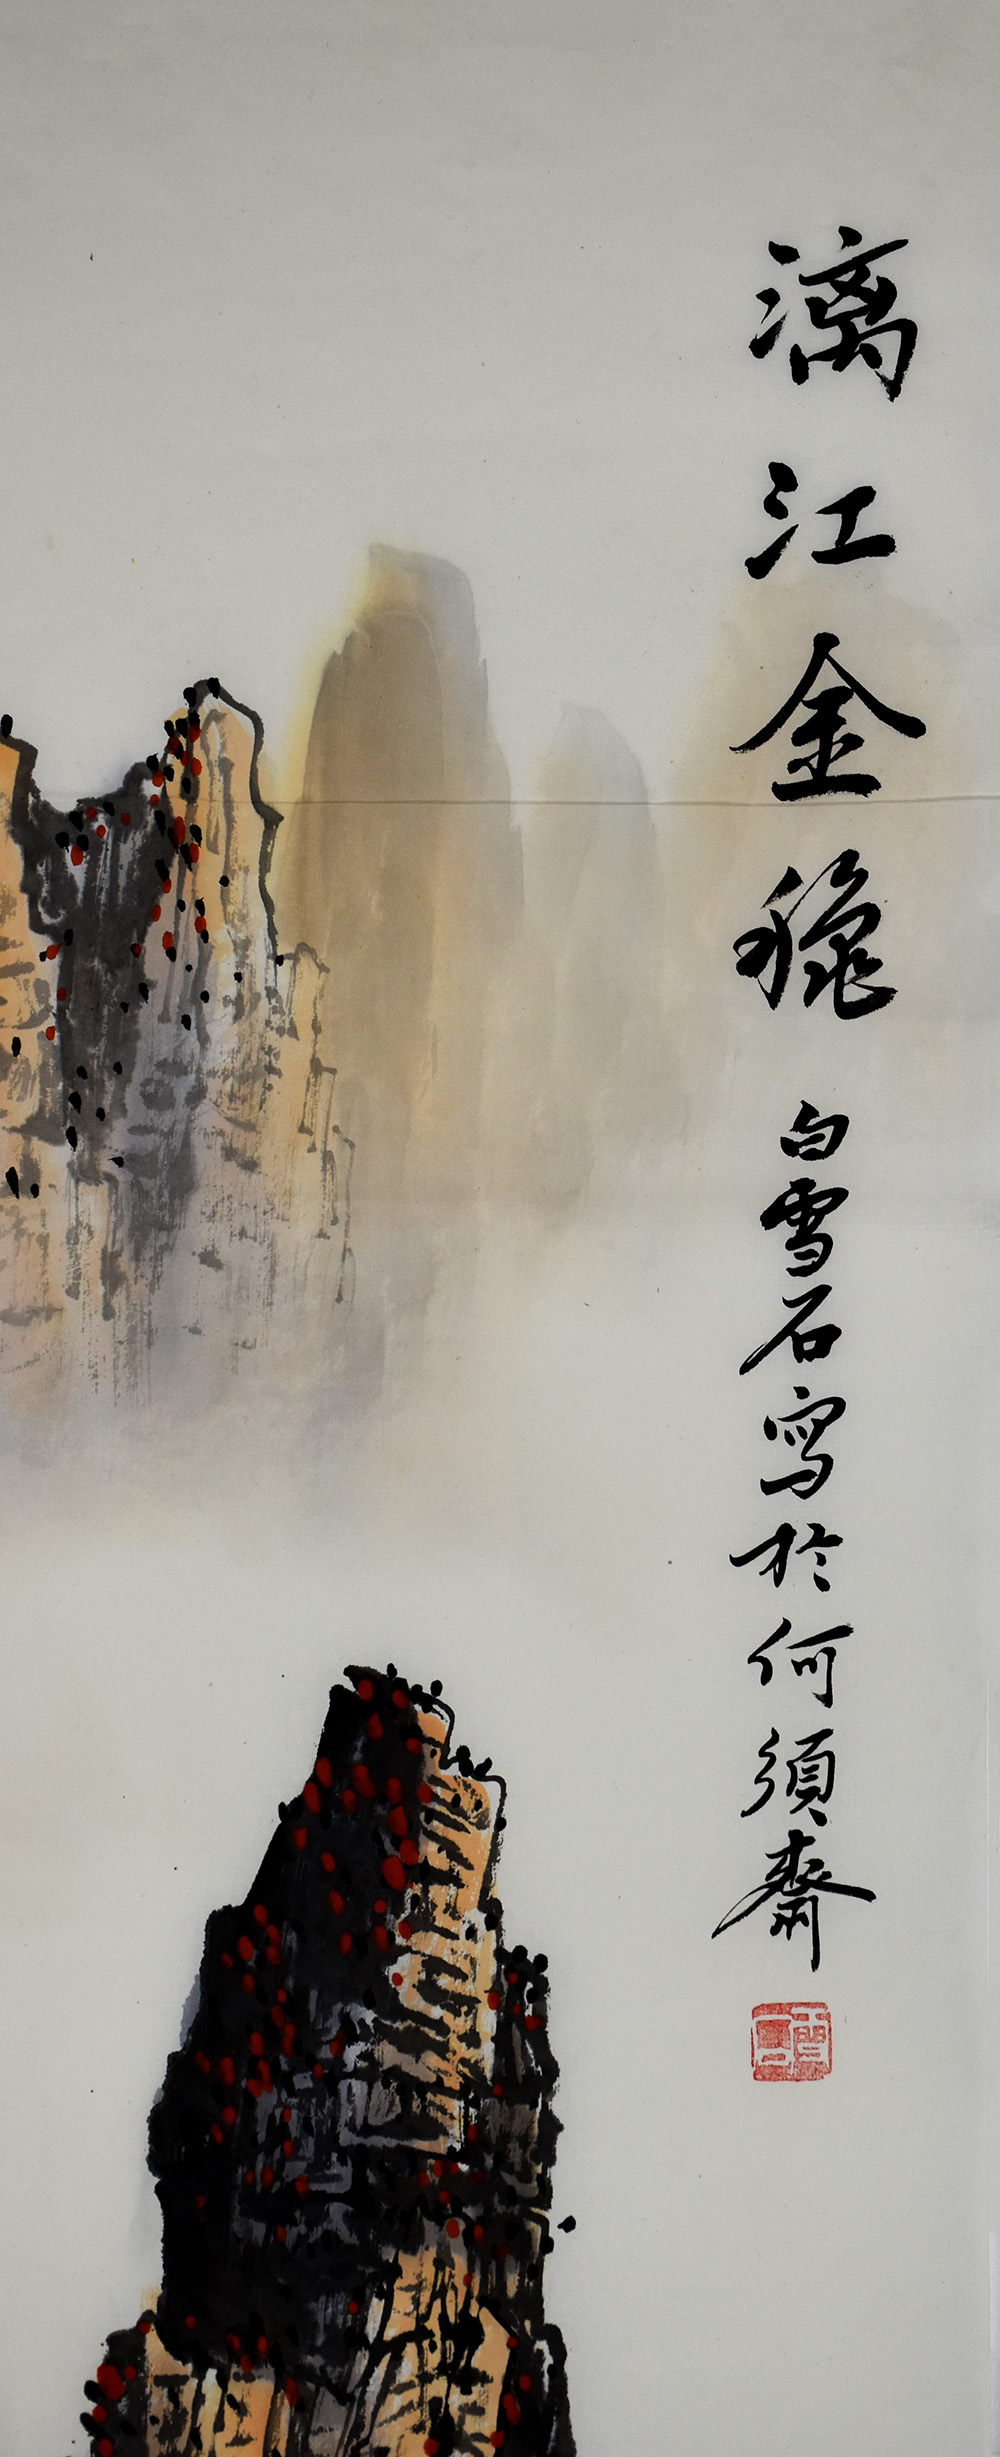 漓江金穐 白雪石寫於何須齋